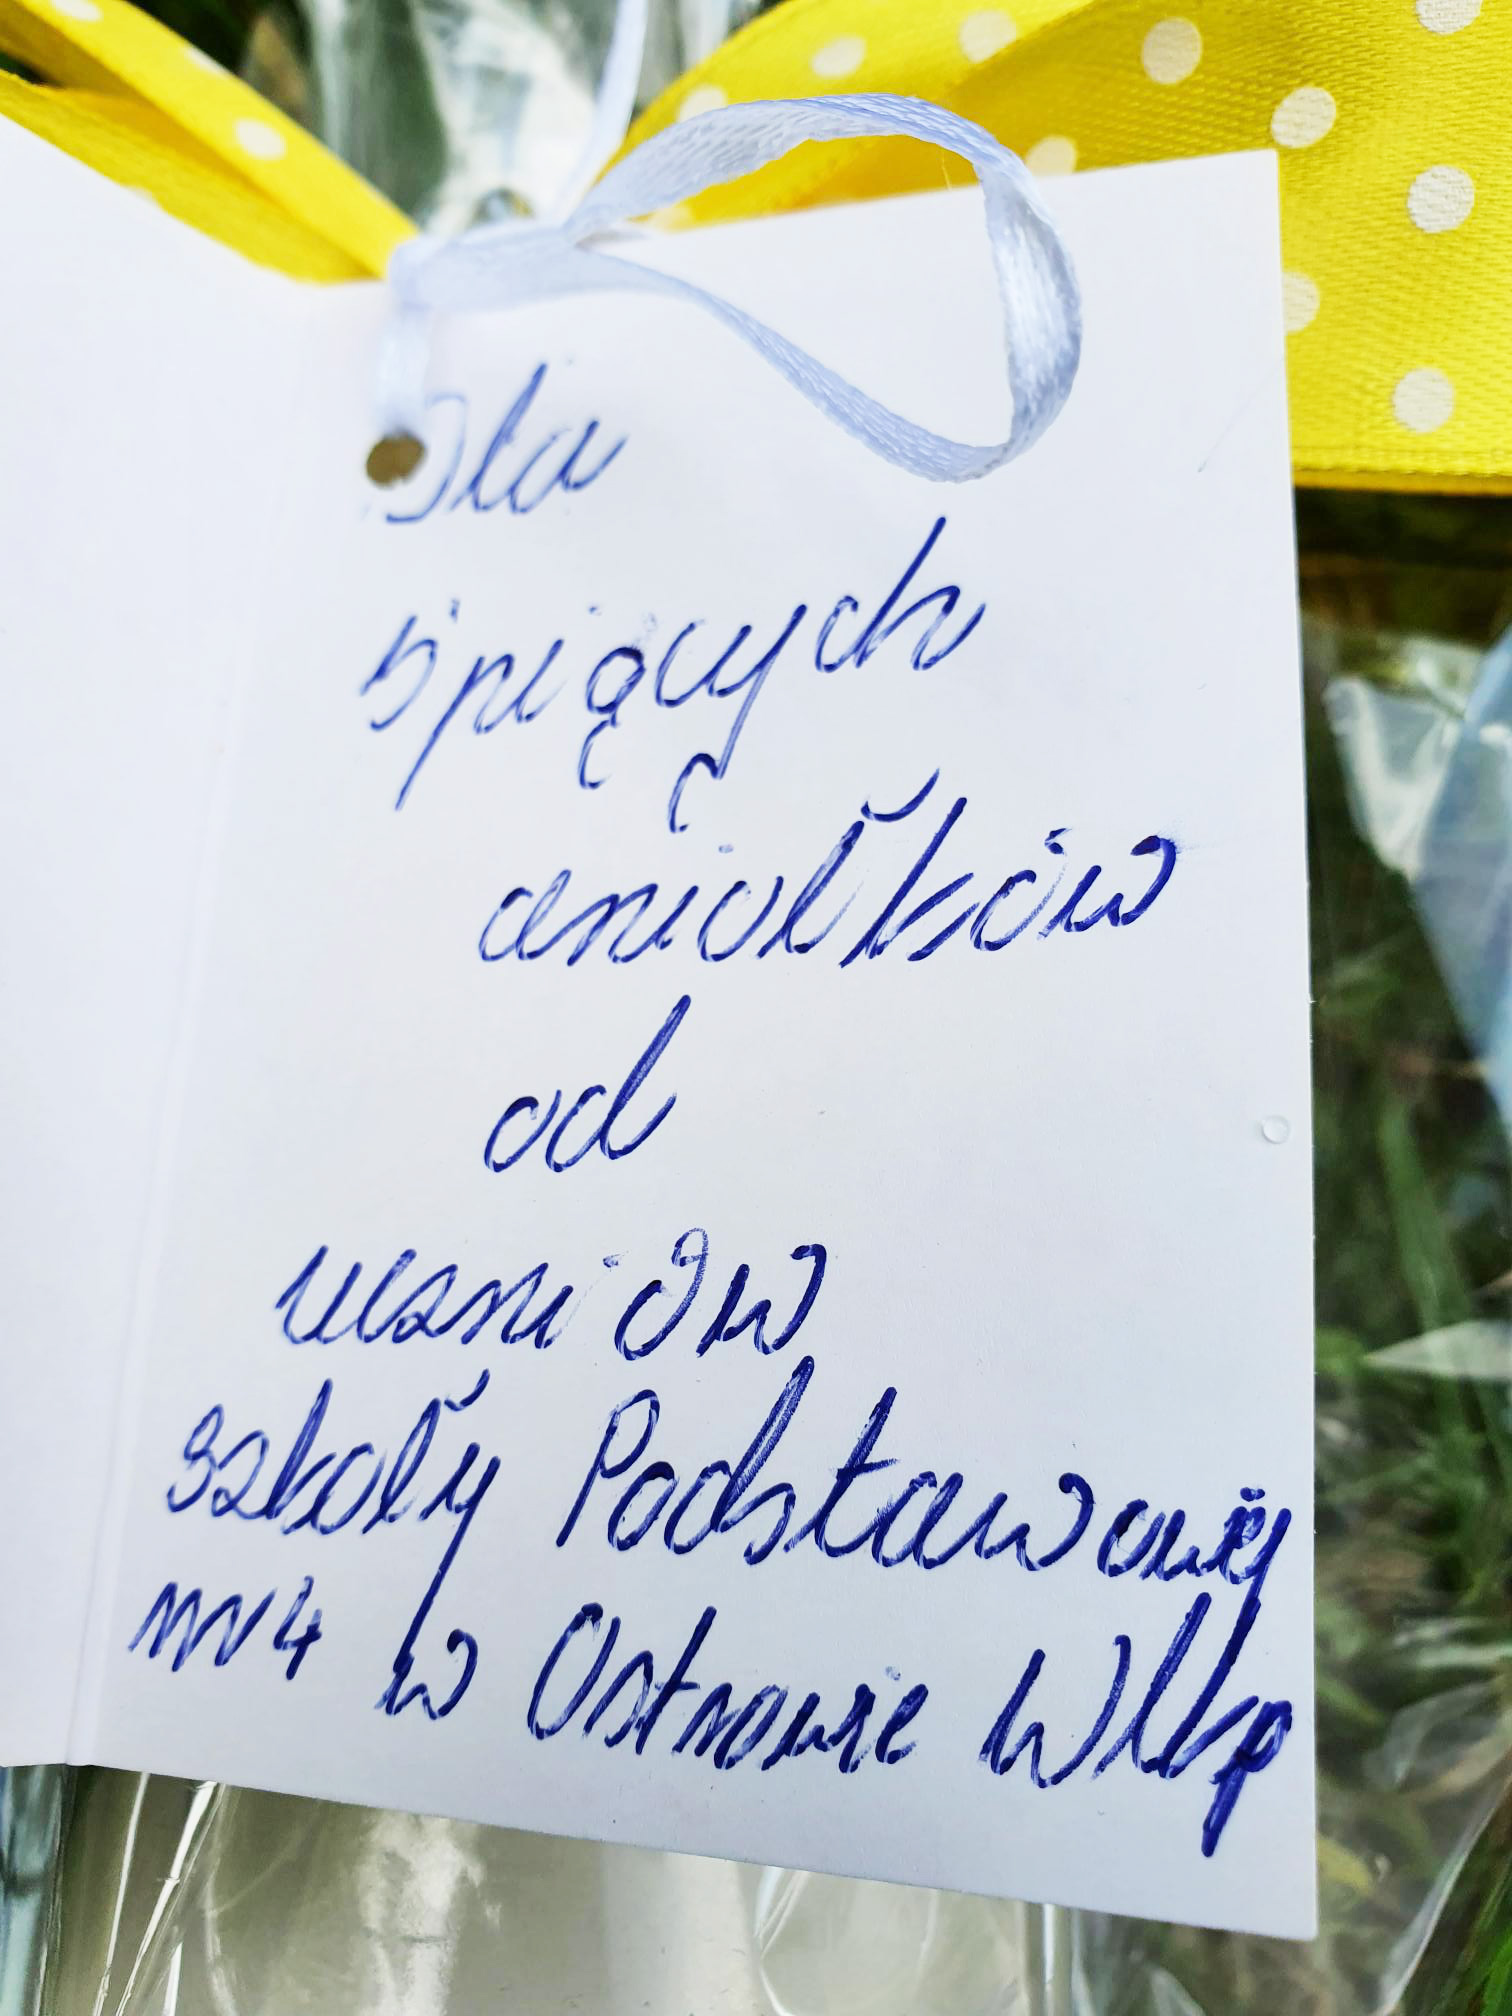 Dla
śpiących
aniołków
od
uczniów
szkoły Podstawowej
nr 4 w Ostrowie Wlkp